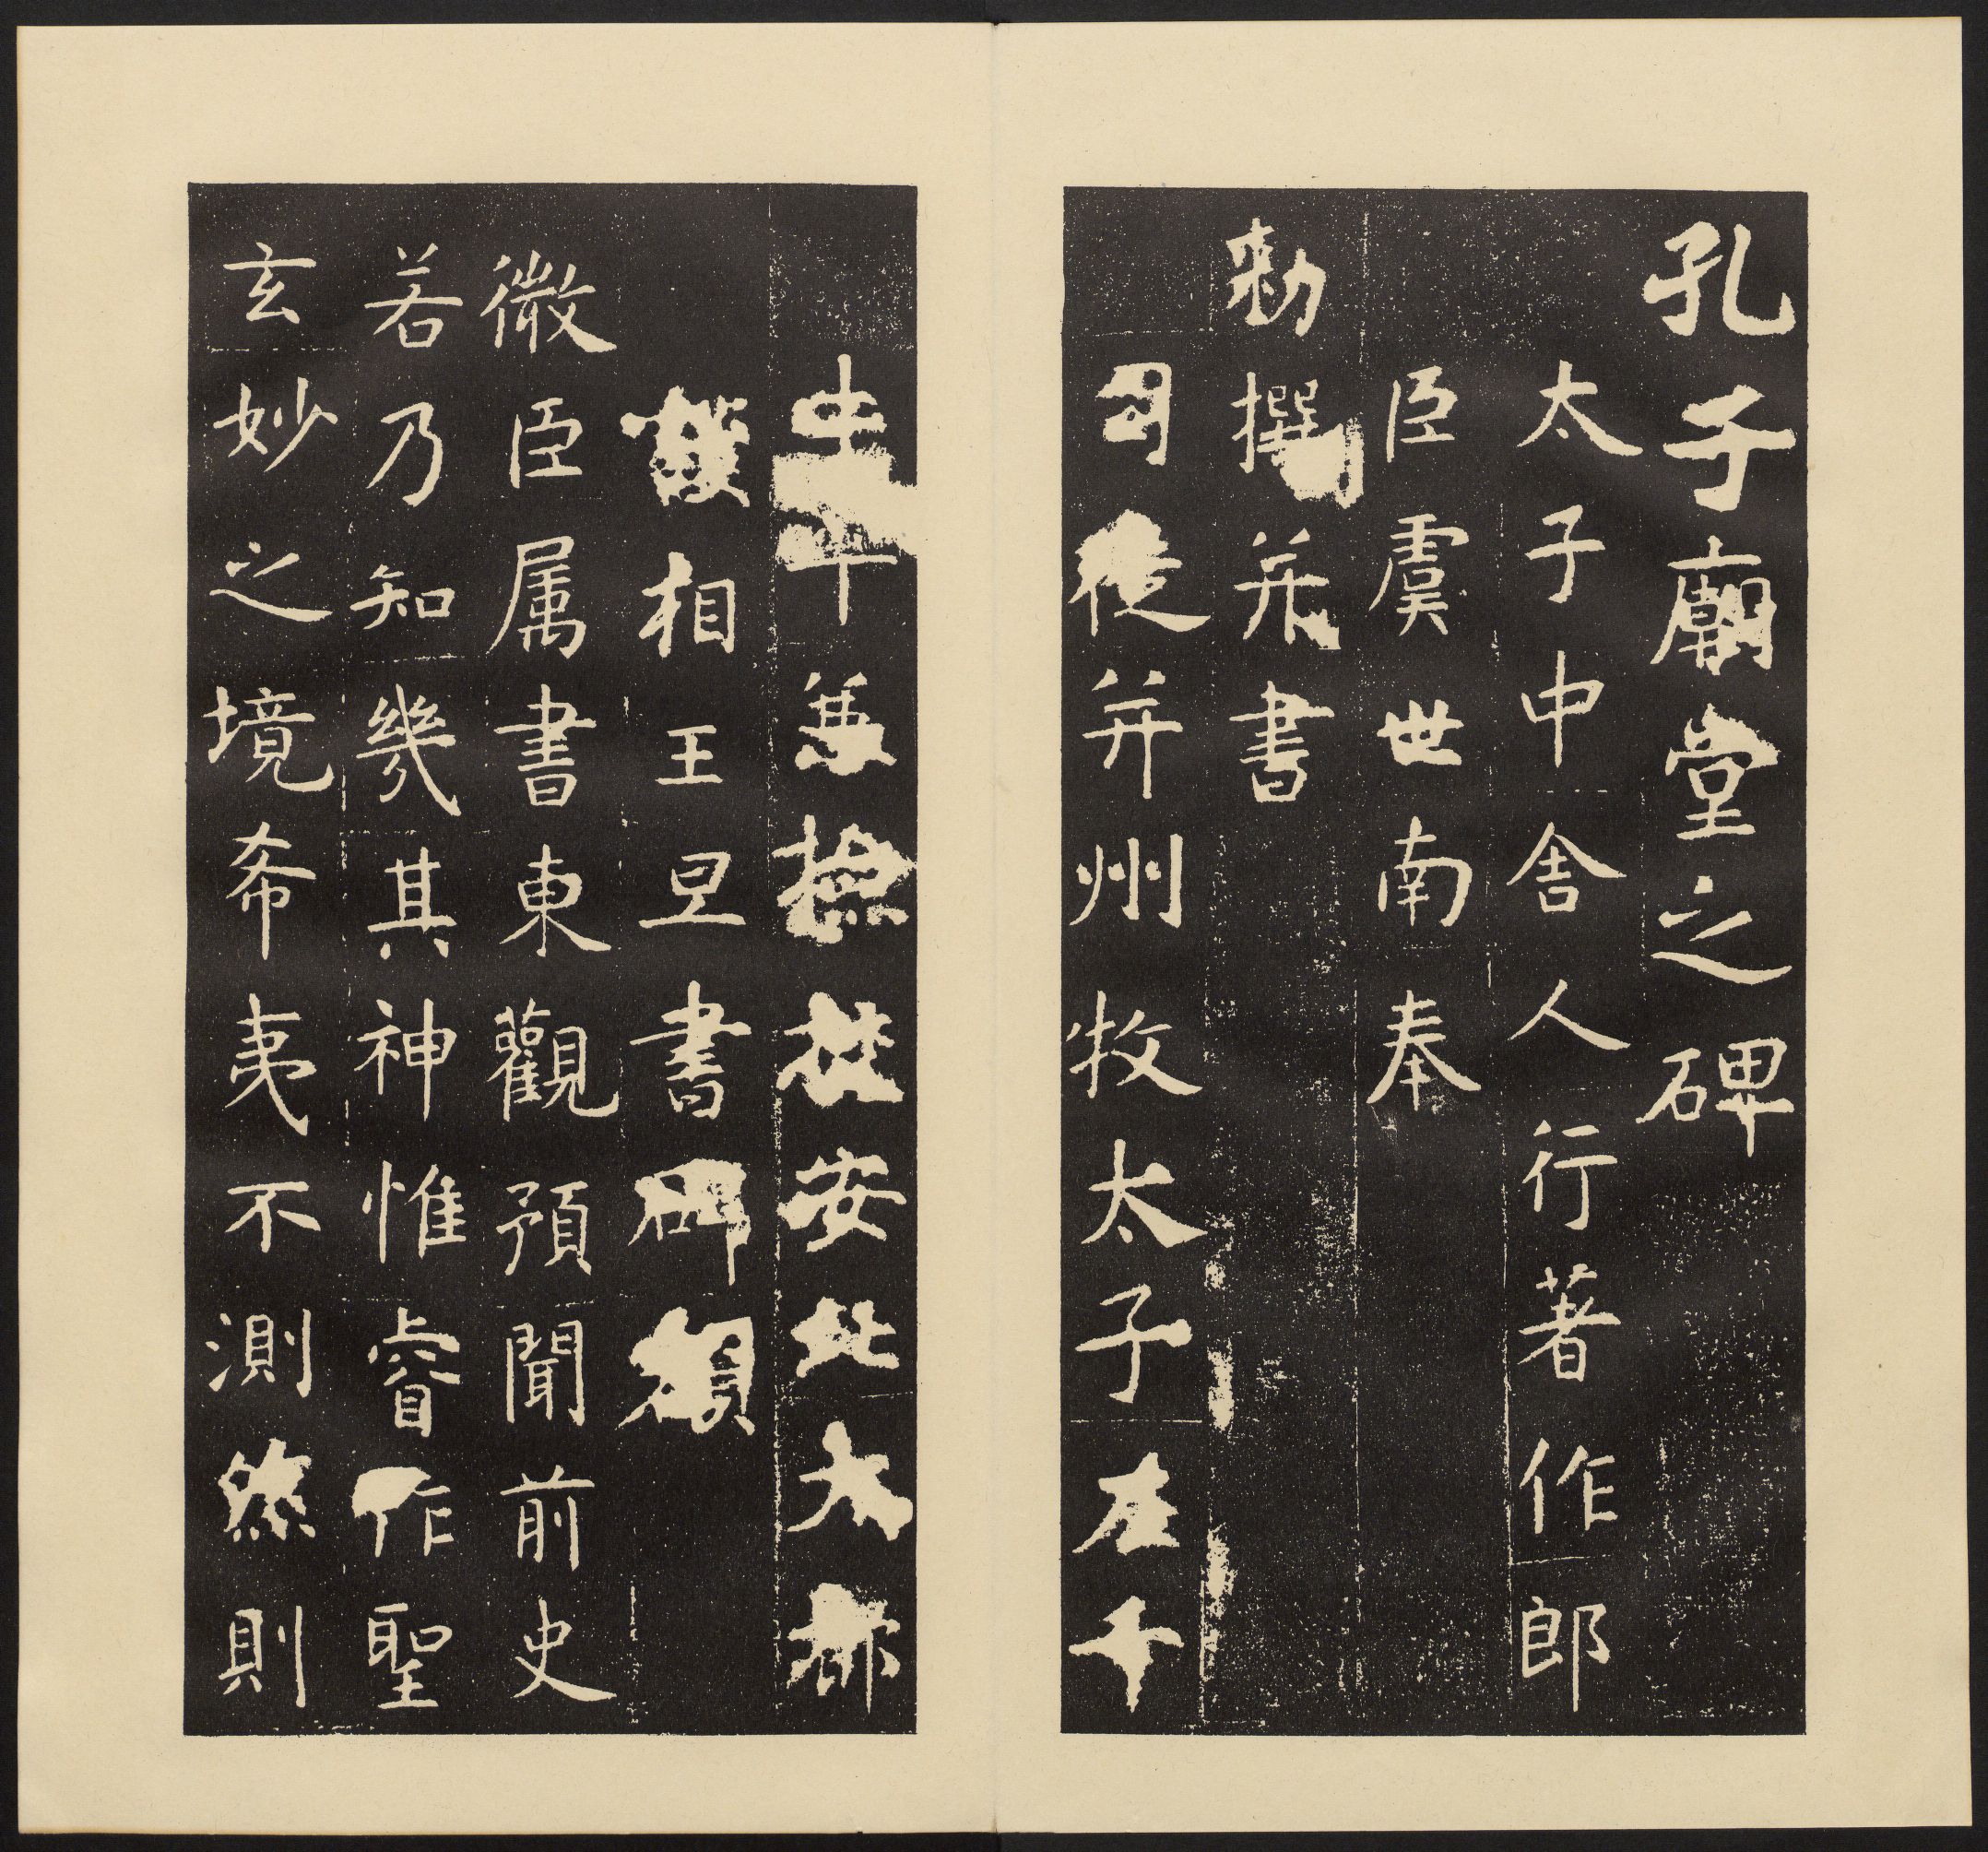 孔子廟堂之碑
太子中舍人行著作郎
臣虞世南奉
勑撰并書
司徒并州牧太子左千
牛兼撿挍安北大都
護相王旦書碑額
微臣属書東觀預聞前史
若乃知幾其神惟睿作聖
玄妙之境希夷不測然則